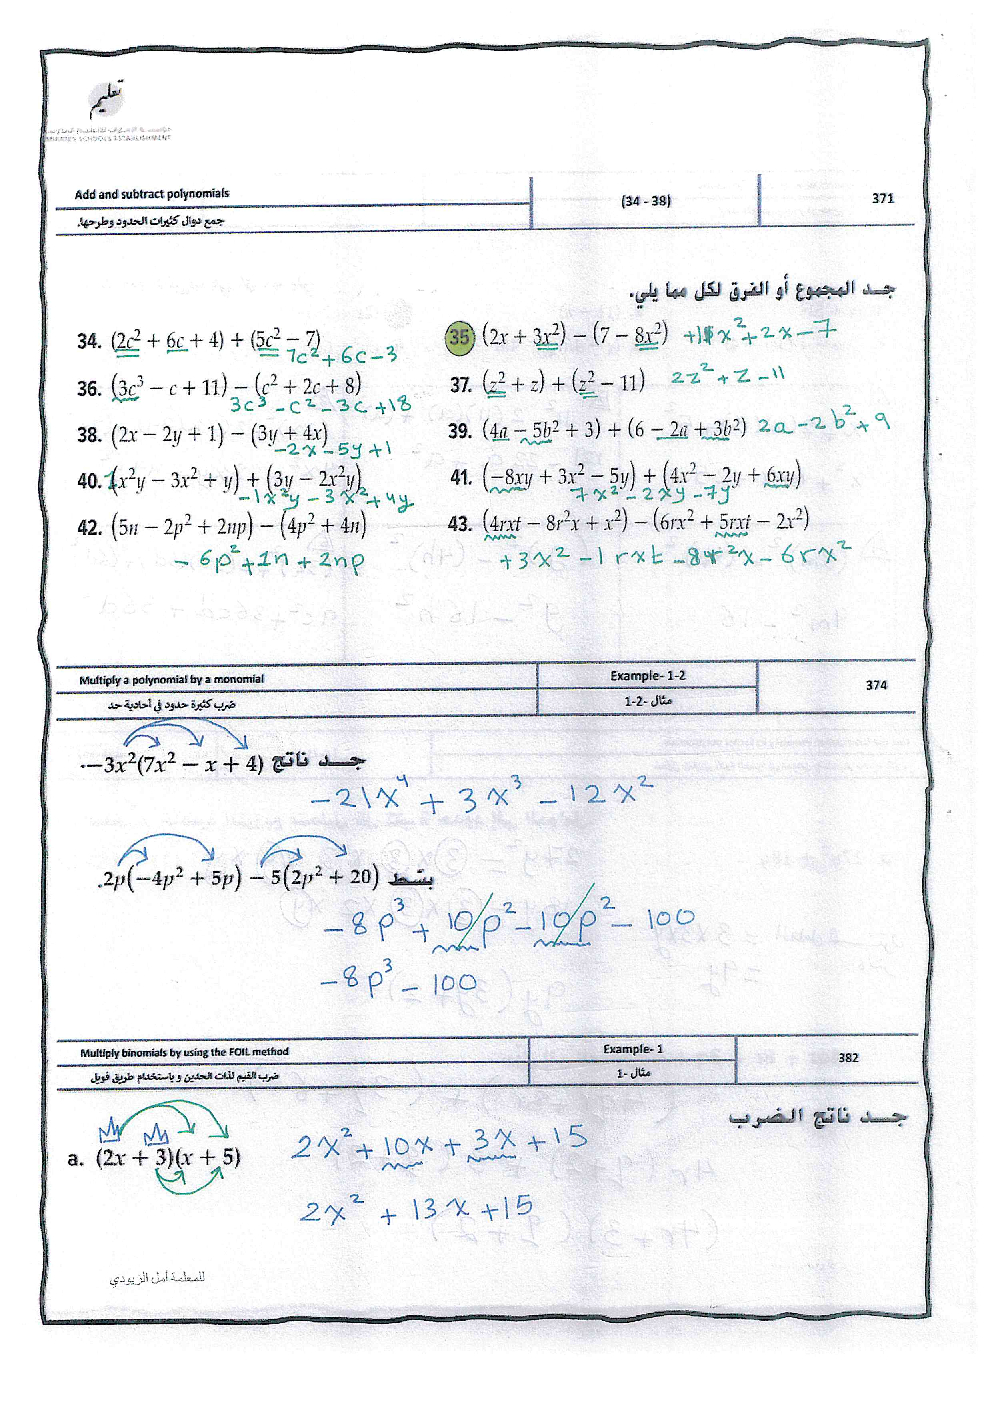 تعليم
مؤسسة الإمارات للتعليم المدرسي
EMIRATES SCHOOLS ESTABLISHMENT
Add and subtract polynomials (34 - 38) 371
جمع دوال كثيرات الحدود وطرحها.
جـد المجموع أو الفرق لكل مما يلي.
34. (2c² + 6c + 4) + (5c² − 7)
7c² + 6c − 3
35 (2x + 3x²) − (7 − 8x²) +11x² + 2x − 7
36. (3c³ − c + 11) − (c² + 2c + 8)
3c³ − c² − 3c + 18
37. (z² + z) + (z² − 11) 2z² + z − 11
38. (2x − 2y + 1) − (3y + 4x)
−2x − 5y + 1
39. (4a − 5b² + 3) + (6 − 2a + 3b²) 2a − 2b² + 9
40. (x²y − 3x² + y) + (3y − 2x²y)
−1x²y − 3x² + 4y
41. (−8xy + 3x² − 5y) + (4x² − 2y + 6xy)
7x² − 2xy − 7y
42. (5n − 2p² + 2np) − (4p² + 4n)
− 6p² + 1n + 2np
43. (4rxt − 8r²x + x²) − (6rx² + 5rxt − 2x²)
+3x² − 1rxt − 8r²x − 6rx²
Multiply a polynomial by a monomial Example- 1-2 374
ضرب كثيرة حدود في أحادية حد مثال -2-1
جـد ناتج −3x²(7x² − x + 4).
−21x⁴ + 3x³ − 12x²
بسّط 2p(−4p² + 5p) − 5(2p² + 20).
−8p³ + 10p² − 10p² − 100
−8p³ − 100
Multiply binomials by using the FOIL method Example- 1 382
ضرب القيم لذات الحدين و باستخدام طريق فويل مثال -1
جـد ناتج الضرب
a. (2x + 3)(x + 5) 2x² + 10x + 3x + 15
2x² + 13x + 15
للمعلمة أمل الزيودي